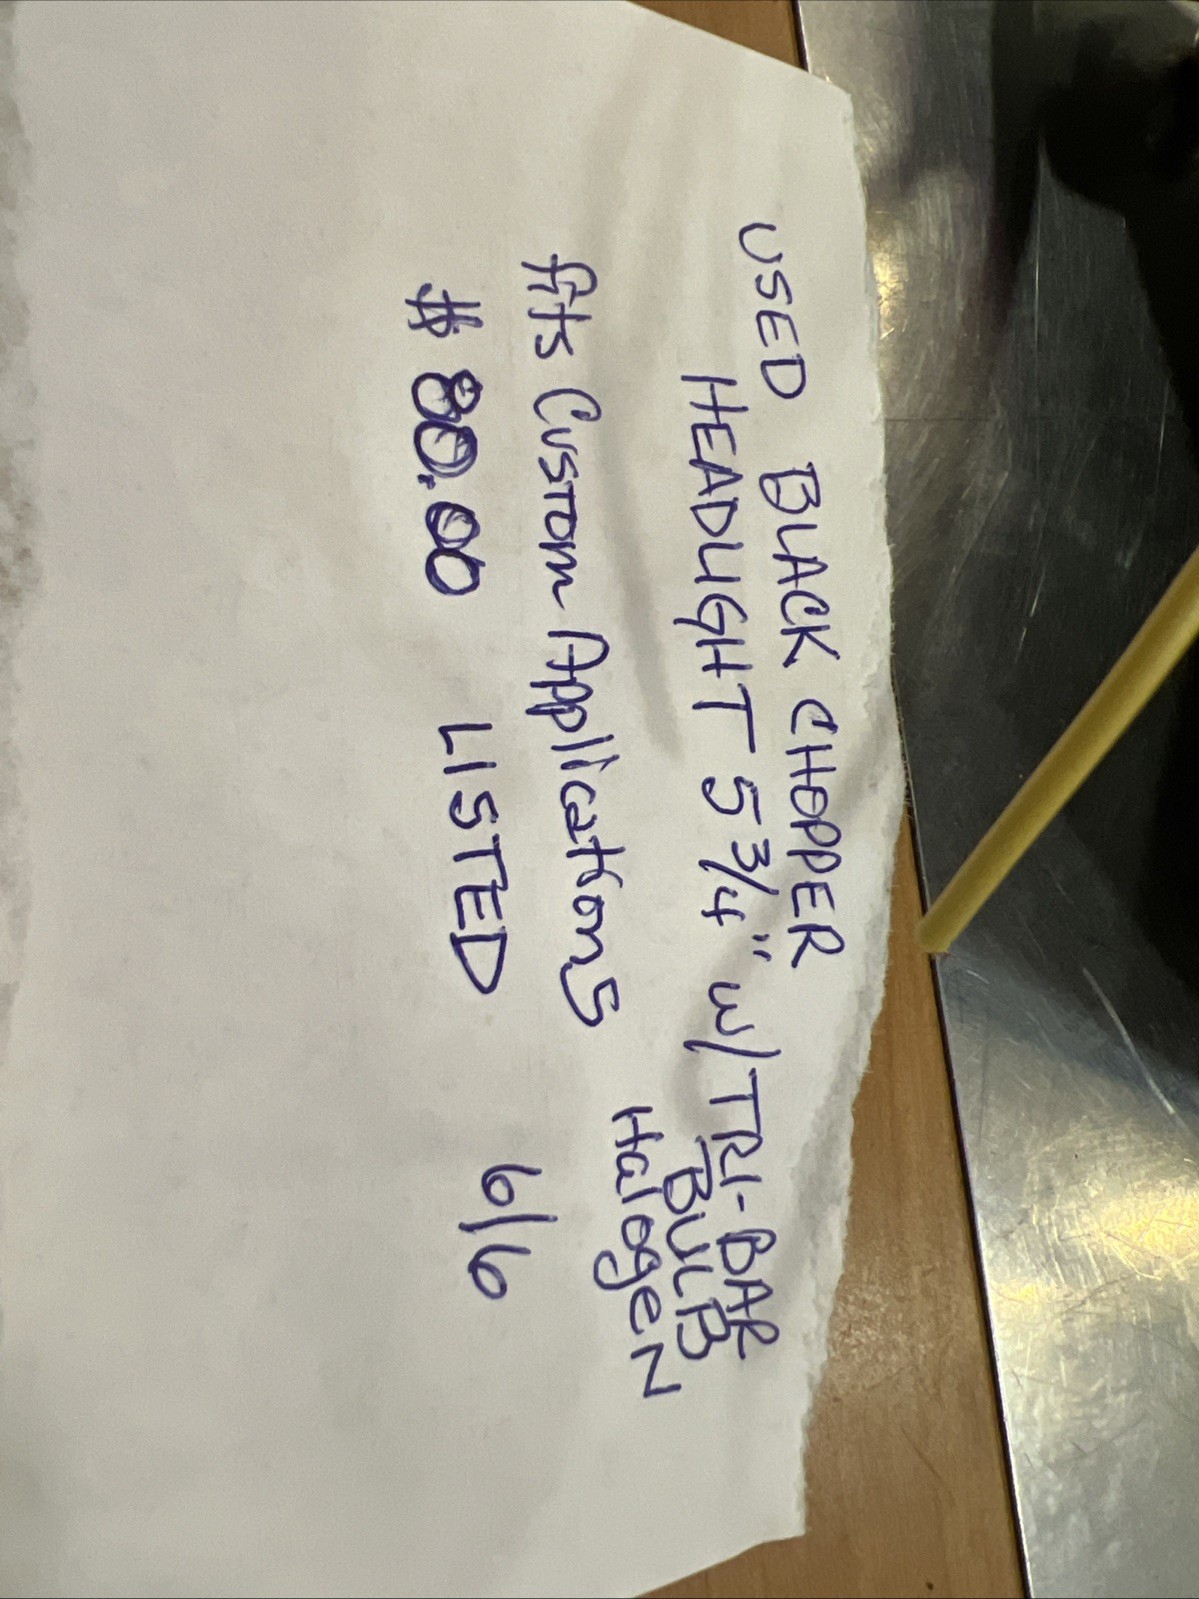 USED BLACK CHOPPER
HEADLIGHT 5 3/4" w/ TRI-BAR
BULB
HalogEN
fits Custom Applications
$80.00 LISTED 6/6